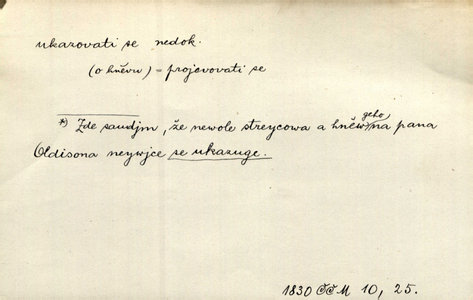 ukazovati se nedok.
(o hněvu) = projevovati se
*) Zde saudjm, že newole streycowa a hněw geho na pana
Oldisona neywjce se ukazuge.
1830 10, 25.